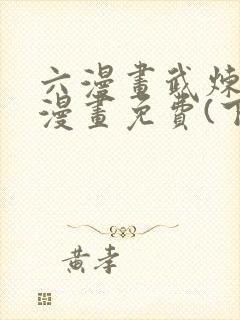 六漫畫武煉
漫畫免費(下
黃孝